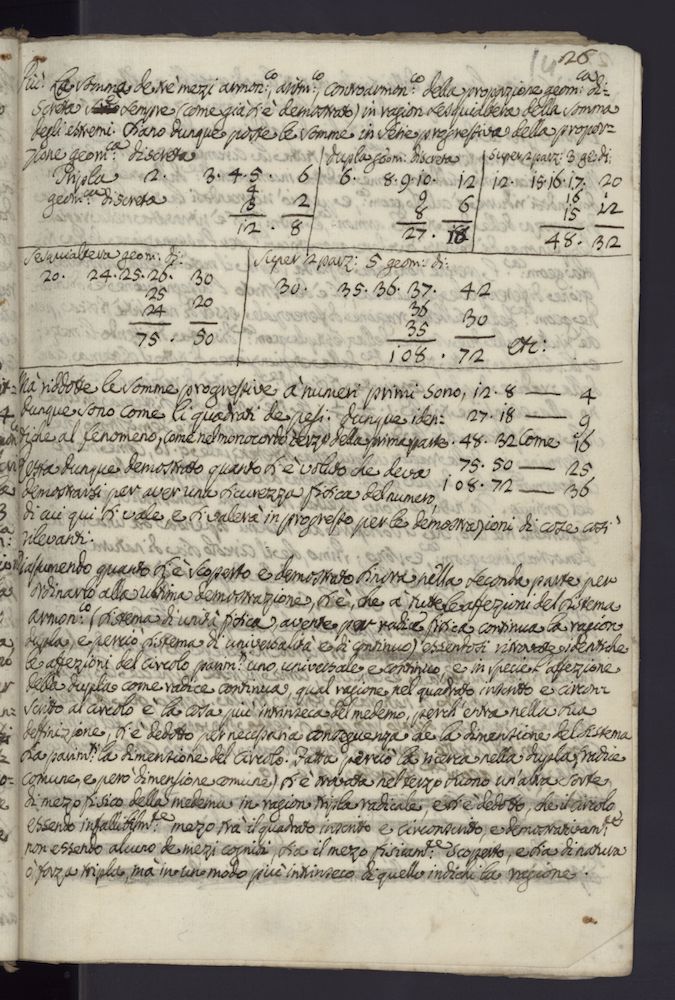 26
più. La somma de trè mezi armon:co, aritm:co, controarmon:co della proporzione geom:ca di-
screta sempre (come già si è demostrato) in ragion sesquialtera della somma
degli estremi. Siano dunque poste le somme in serie progressiva della propor-
zione geom:ca discreta
Dupla geom: discreta
Super 2 parz: 3 ge: di:
Tripla 2. 3. 4. 5. 6
6. 8. 9. 10. 12
12. 15. 16. 17. 20
geom:ca discreta
4
3 2
12. 8
9
8 6
27. 18
16
15 12
48. 32
Sesquialtera geom: di:
20. 24. 25. 26. 30
25
24 20
75. 50
Super 2 parz: 5 geom: di:
30. 35. 36. 37. 42
36
35 30
108. 72 etc:
Ma ridotte le somme progressive a numeri primi sono, 12. 8 — 4
dunque sono come li quadrati de pesi. Dunque iden- 27. 18 — 9
tiche al fenomeno, come nel monocordo terzo della prima parte. 48. 32 come 16
Resta dunque demostrato quanto si è voluto che deva 75. 50 — 25
demostrarsi per aver una sicurezza fisica del numero, 108. 72 — 36
di cui qui si vale, e si valerà in progresso per le demostrazioni di cose così
rilevanti.
Riassumendo quanto si è scoperto e demostrato sinora nella seconda parte per
ordinario alla ultima demostrazione, si è, che a tutte le affezioni del sistema
armon:co (sistema di unità fisica, avente per radice fisica continua la ragion
dupla, e perciò sistema di universalità e di continuo) essendosi ritrovate identiche
le affezioni del circolo parim:te uno, universale e continuo, e in specie l'affezione
della dupla come radice continua, qual ragione nel quadrato inscritto e circon-
scritto al circolo è la cosa più intrinseca del medemo, perch'entra nella sua
deffinizione, si è dedotto per necessaria conseguenza che la dimensione del sistema
sia parim:te la dimensione del circolo. Fatta perciò la ricerca nella dupla (radice
comune, e però dimensione comune) si è trovata nel terzo suono un'altra sorte
di mezo fisico della medema in ragion tripla radicale, e si è dedotto, che il circolo
essendo infallibilm:te mezo trà il quadrato inscritto e circonscritto, e demostrativam:te
non essendo alcuno de mezi cogniti, sia il mezo fisicam:te scoperto, e sia di natura
o forza tripla, mà in un modo più intrinseco di quello indichi la ragione.